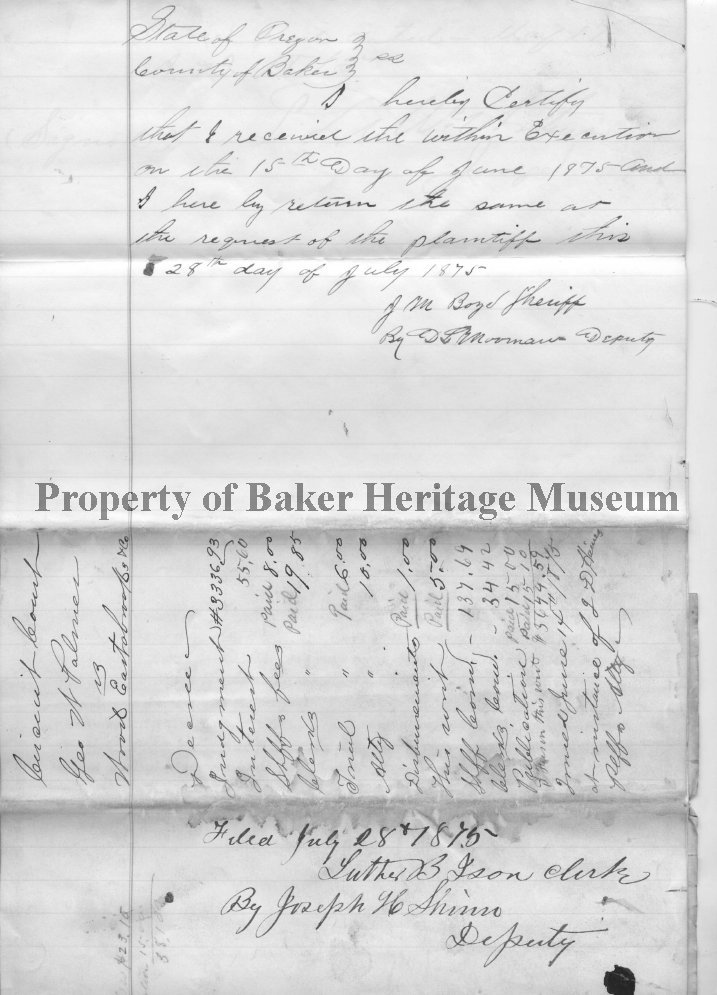 State of Oregon } ss
County of Baker }
I hereby Certify
that I received the within Execution
on the 15th Day of June 1875 and
I here by return the same at
the request of the plaintiff this
28th day of July 1875
J M Boyd Sheriff
By D L Moomaw Deputy
Property of Baker Heritage Museum
Circuit Court
Geo W Palmer
vs
Wood Eastabrook &
Decree
Judgment $3336,93
Interest 55,60
Shffs fees Paid 8.00
Clerks " Paid 19.85
Trial " Paid 6.00
Atty " 10.00
Disbursements Paid 1.00
This writ Paid 5.00
Shff Coms - 137.64
Clerks Coms - 34 42
Publication paid 15-00
Paid 15-10
on this writ $3644.59
Issued June 14th 1875
at instance of I D Haines
Plffs Atty
Filed July 28th 1875
Luther B Ison Clerk
By Joseph H Shinn
Deputy
$23.15
15.
38.1